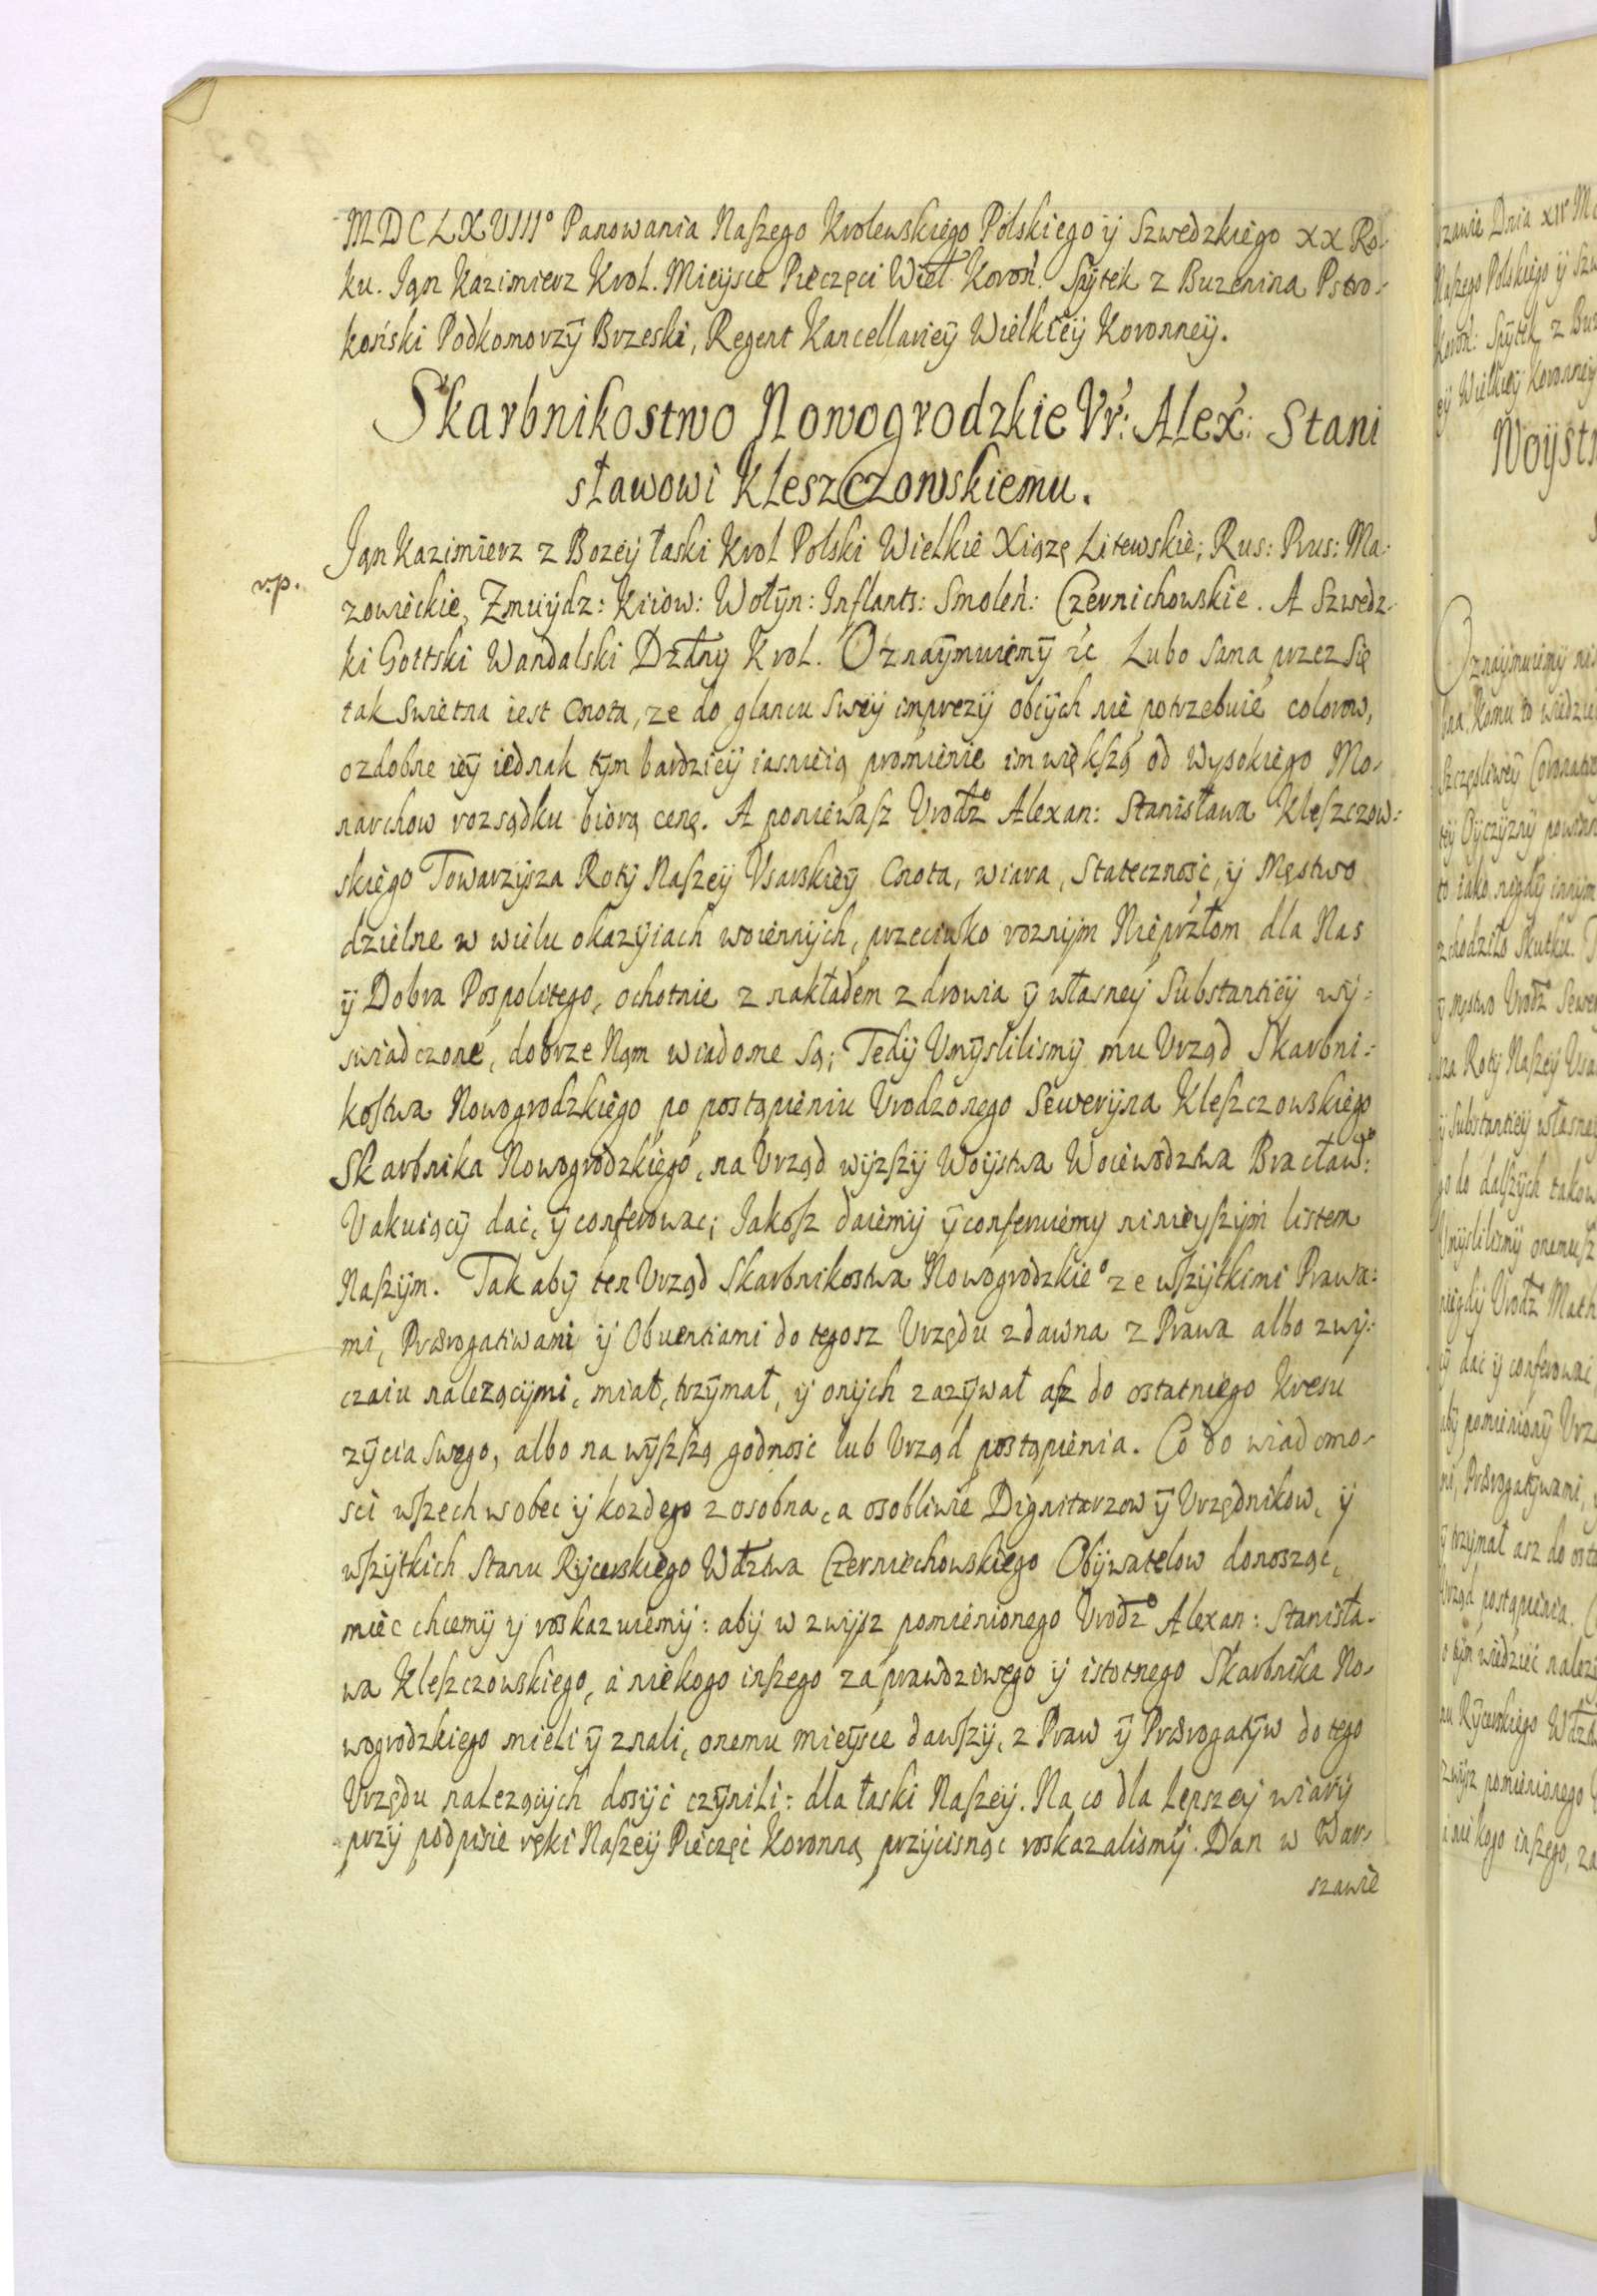 MDCLXVIII° Panowania Naſzego Krolewskiego Polskiego ÿ Szwedzkiego XX Ro-
ku. Ian Kazimierz Krol. Mieysce Pieczęci Wiel: Koroń: Spÿtek z Buzenina Pstro-
koński Podkomorzÿ Brzeski, Regent Kancellarieÿ Wielkieÿ Koronneÿ.
Skarbnikostwo Nowogrodzkie Vr: Alex: Stani
sławowi Kleszczowskiemu.
Ian Kazimierz z Bozeÿ łaski Krol Polski Wielkie Xiązę Litewskie, Rus: Prus: Ma-
v.p.
zowieckie, Zmuÿdz: Kiiow: Wołÿn: Inflants: Smoleń: Czernichowskie. A Szwedz-
ki Gottski Wandalski Dzłny Krol. Oznaÿmuiemÿ &c Lubo sama przez się
tak swietna iest Cnota, ze do glancu sweÿ imprezÿ obcÿch nie potrzebuie colorow,
ozdobne ieÿ iednak tÿm bardzieÿ iasnieią promienie im większą od Wysokiego Mo-
narchow rozsądku biorą cenę. A poniewasz Vrodz° Alexan: Stanisława Kleſzczow-
skiego Towarzÿsza Rotÿ Naſzeÿ Vsarskieÿ Cnota, wiara, Stateczność, ÿ Męstwo
dzielne w wielu okazÿiach woiennÿch, przeciwko roznÿm Nieprzłom dla Nas
ÿ Dobra Pospolitego, ochotnie z nakładem zdrowia ÿ własneÿ Substantieÿ wÿ-
swiadczone, dobrze Nąm wiadome są; Tedÿ Vmÿslilismÿ mu Vrząd Skarbni-
kostwa Nowogrodzkiego po postąpieniu Vrodzonego Sewerÿna Kleſzczowskiego
Skarbnika Nowogrodzkiego, na Vrząd wÿzſzÿ Woÿstwa Woiewodztwa Bracław°:
Vakuiącÿ dać, ÿ conferować; Jakoſz daiemÿ ÿ conferuiemy ninieÿſzÿm listem
Naſzÿm. Tak abÿ ten Vrząd Skarbnikostwa Nowogrodzkie° ze wſzÿtkimi Prawa-
mi, Prærogatiwami ÿ Obuentiami do tegosz Vrzędu zdawna z Prawa albo zwÿ-
czaiu nalezącÿmi, miał, trzÿmał, ÿ onÿch zazÿwał aſz do ostatniego kresu
zÿcia swego, albo na wÿſzſzą godność lub Vrząd postąpienia. Co do wiadomo-
sci wſzech wobec ÿ kozdego zosobna, a osobliwie Dignitarzow ÿ Vrzędnikow, ÿ
wſzÿtkich Stanu Rÿcerskiego Wdztwa Czerniechowskiego Obÿwatelow donosząc,
mieć chcemÿ ÿ roskazuiemÿ: abÿ wzwÿsz pomienionego Vrodz° Alexan: Stanisła-
wa Kleſzczowskiego, a niekogo inſzego za prawdziwego ÿ istotnego Skarbnika No-
wogrodzkiego mieli ÿ znali, onemu mieÿsce dawſzÿ, z Praw ÿ Prærogatÿw do tego
Vrzędu nalezącÿch dosÿć czÿnili: dla łaski Naſzeÿ. Na co dla Lepszeÿ wiarÿ
przÿ podpisie ręki Naſzeÿ Pieczęć Koronną przÿcisnąć roskazalismÿ. Dan w War-
szawie